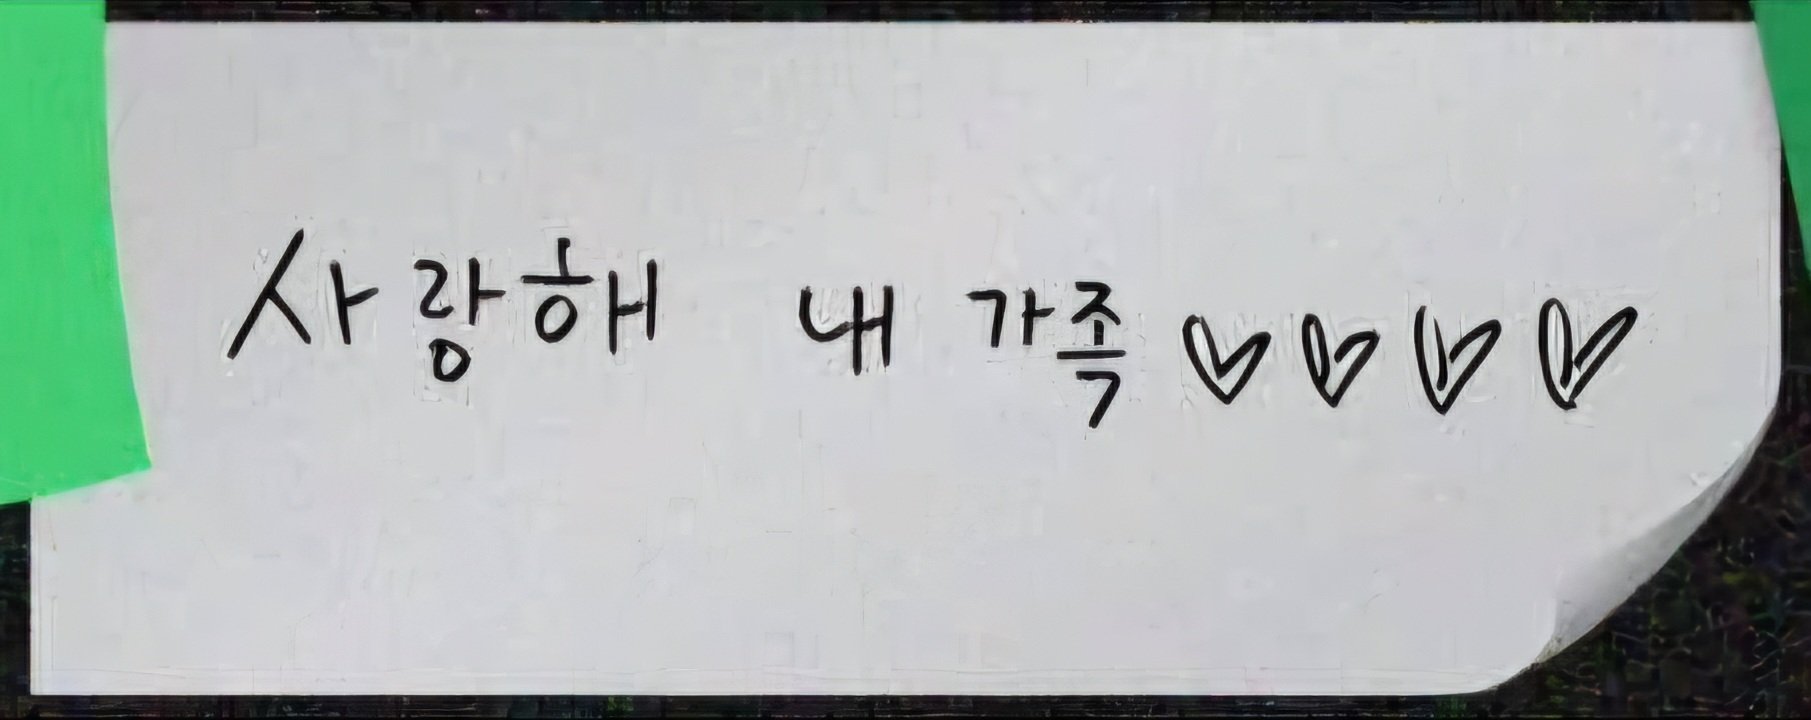 사랑해 내 가족♡♡♡♡